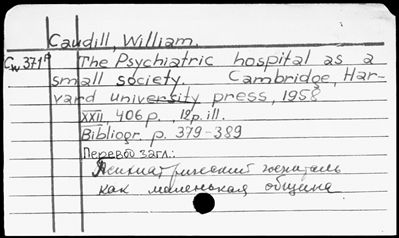 Caudill, William.
Cw371A The Psychiatric hospital as a
small society. Cambridge, Har-
vard university press, 1958
XXII, 406 p. 12 p. ill.
Bibliogr. p. 379-389
Перевод загл.:
Психиатрический госпиталь
как маленькая община